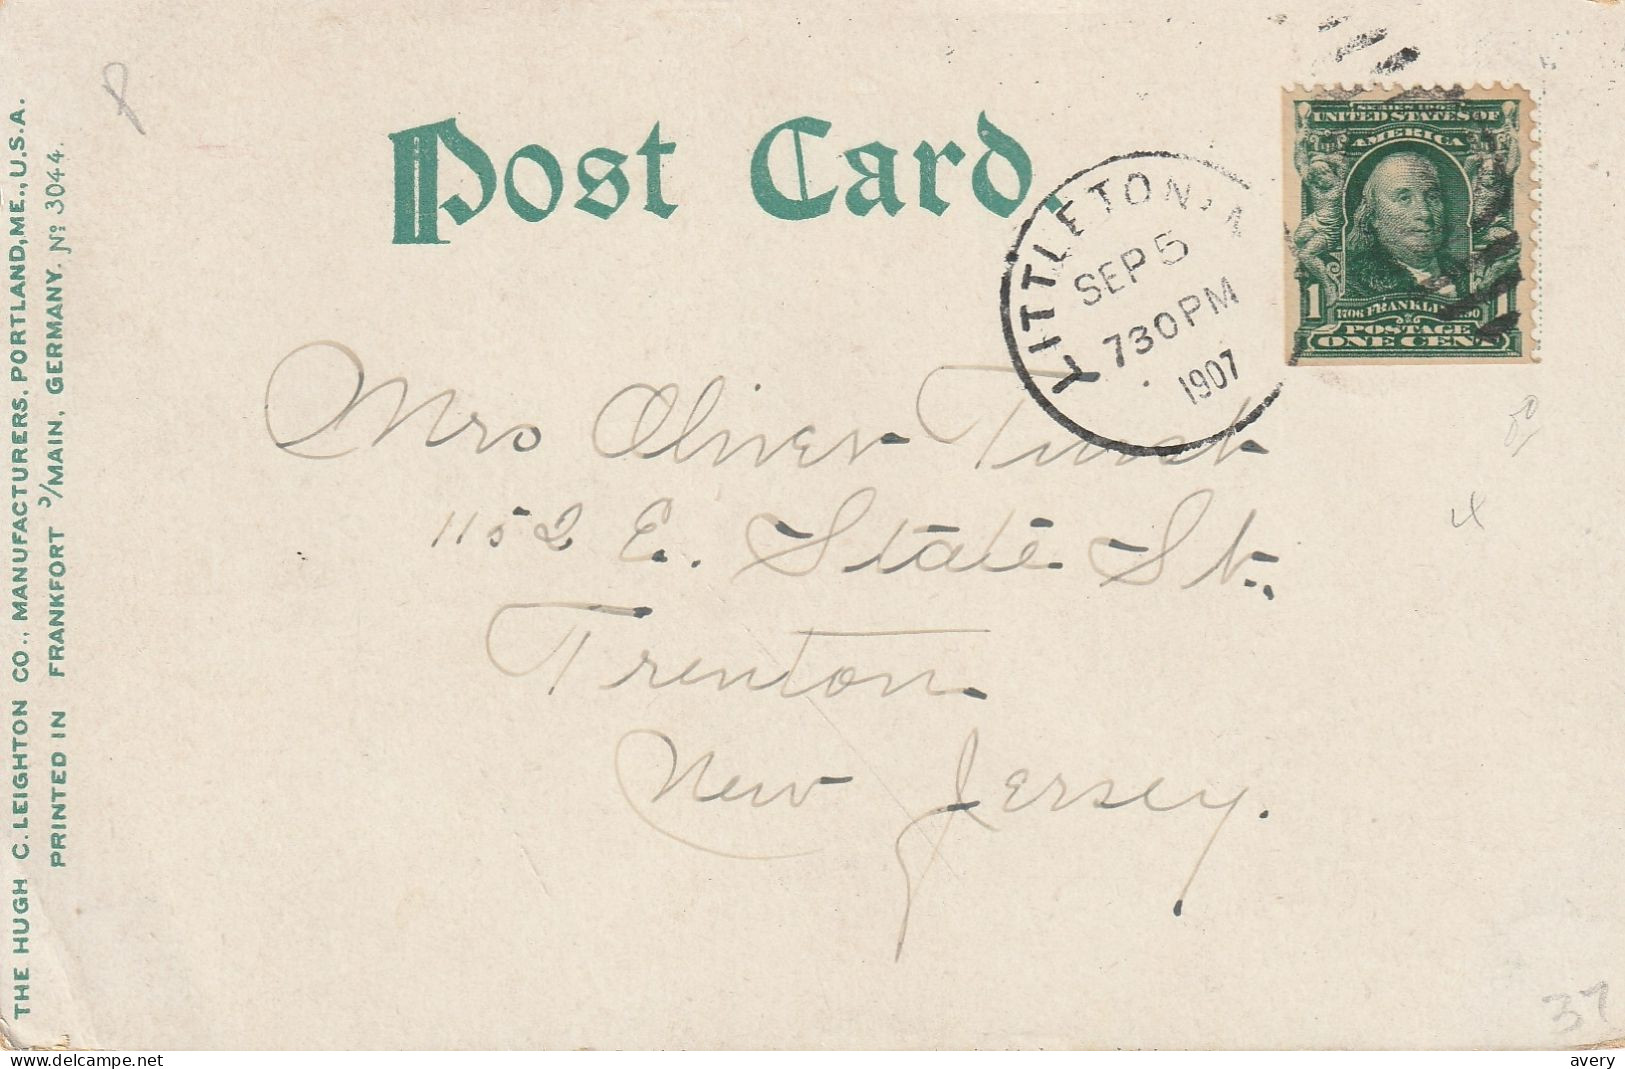 THE HUGH C. LEIGHTON CO., MANUFACTURERS, PORTLAND, ME., U.S.A.
PRINTED IN FRANKFORT a/MAIN, GERMANY. No 3044.
Post Card.
LITTLETON,
SEP 5
730PM
1907
SERIES 1902
UNITED STATES OF
AMERICA
1 1
1706 FRANKLIN 1790
POSTAGE
ONE CENT
Mrs Oliver
1152 E. State St.,
Trenton
New Jersey.
37
avery